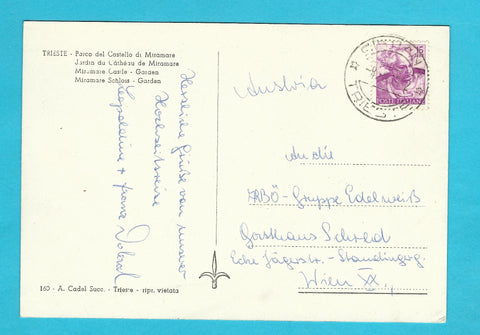 TRIESTE - Parco del Castello di Miramare
Jardin du Câtheau de Miramare
Miramare Castle - Garden
Miramare Schloss - Garden
Herzliche Grüße von unserer
Hochzeitsreise
Leopoldine & Franz
160 - A. Cadel Succ. - Trieste - ripr. vietata
TRIESTE
POSTE ITALIANE
Austria
An die
ARBÖ-Gruppe Edelweiß
Gasthaus Schred
Ecke Jägerstr.-
Wien XX.,